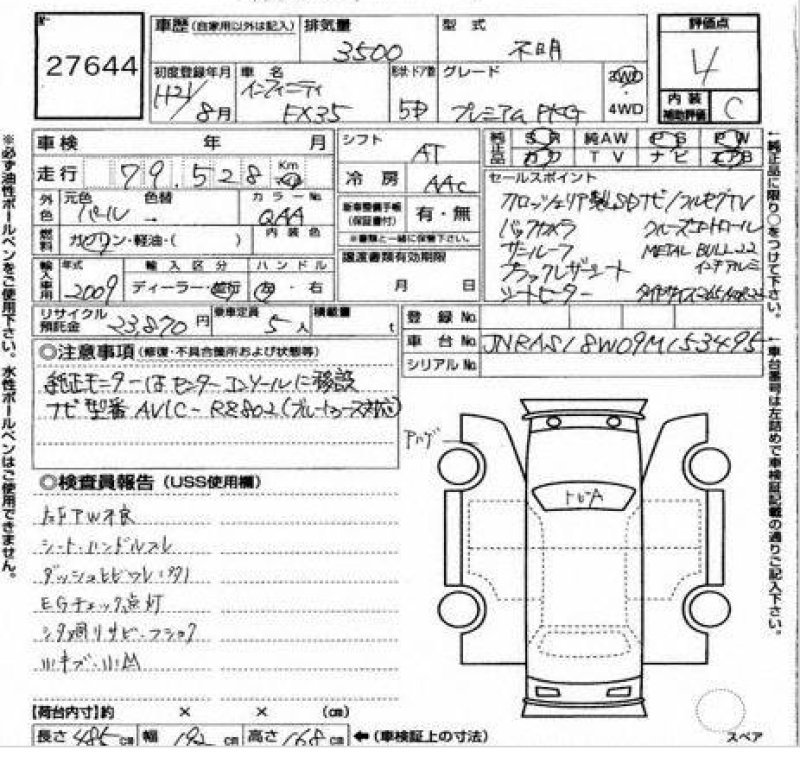 27644
車歴(自家用以外は記入) 排気量 3500 型式 不明
初度登録年月 H21/8月 車名 インフィニティ EX35 形状・ドア数 5D グレード プレミアム PKG 2WD 4WD
評価点 4
内装補助評価 C
車検 年 月
シフト AT
純正品 SR 純AW PS PW
カワ TV ナビ エアB
走行 79,528 Km
冷房 AAC
セールスポイント
外色 元色 パール 色替 → カラーNo. QAA
内装色
新車整備手帳(保証書付) 有・無
※書類と一緒に保管下さい。
カロッツェリア製SDナビ/フルセグTV
バックカメラ クルーズコントロール
サンルーフ METAL BULL 22
インチアルミ
ブラックレザーシート
シートヒーター
燃料 ガソリン・軽油・( )
譲渡書類有効期限
月 日
輸入車用 年式 2009 輸入区分 ディーラー・並行 ハンドル 左・右
リサイクル預託金 23,870円 乗車定員 5人 積載量 t
登録No.
車台No. JNRAS18W09M153495
シリアルNo.
◎注意事項(修復・不具合箇所および状態等)
純正モニターはセンターコンソールに移設
ナビ型番 AVIC-RZ802(ブルートゥース対応)
◎検査員報告(USS使用欄)
左FPW不良
シート・ハンドルスレ
EGチェック点灯
シタ廻リサビ・フショク
小キズ・小凹
トビA
【荷台内寸】約 × × (cm)
長さ 485cm 幅 192cm 高さ 168cm ←(車検証上の寸法)
スペア
※必ず油性ボールペンをご使用下さい。水性ボールペンはご使用できません。
←純正品に限り○をつけて下さい。
←車台番号は左詰めで車検証記載の通りご記入下さい。